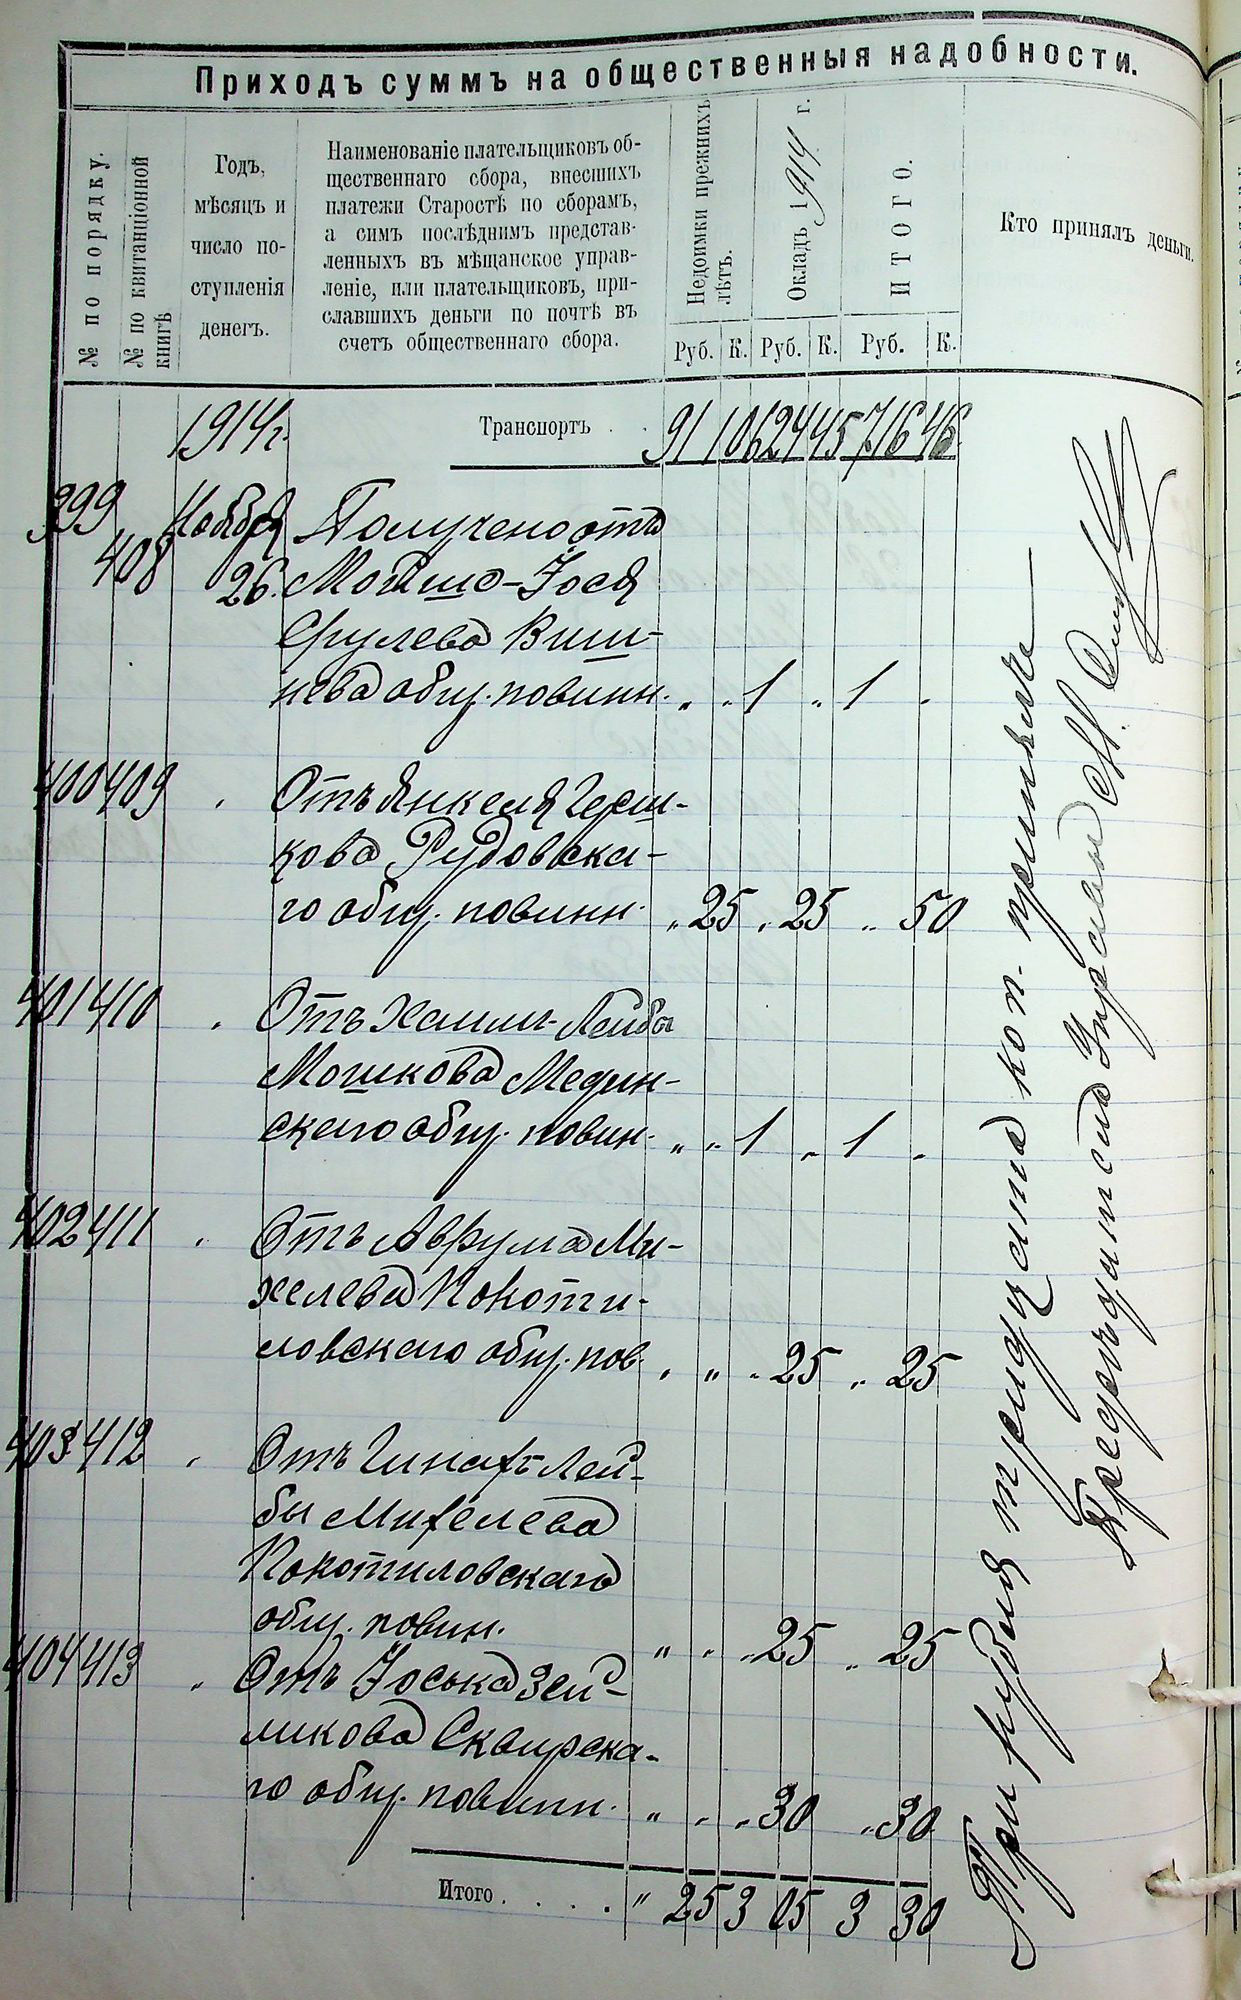 Приходъ суммъ на общественныя надобности.
№ по порядку.
№ по квитанціонной книгѣ
Годъ,
мѣсяцъ и
число по-
ступленія
денегъ.
Наименованіе плательщиковъ об-
щественнаго сбора, внесшихъ
платежи Старостѣ по сборамъ,
а симъ послѣднимъ представ-
ленныхъ въ мѣщанское управ-
леніе, или плательщиковъ, при-
славшихъ деньги по почтѣ въ
счетъ общественнаго сбора.
Недоимки прежнихъ лѣтъ.
Окладъ 1914 г.
ИТОГО.
Кто принялъ деньги.
Руб. К. Руб. К. Руб. К.
1914 г. Транспортъ . . 91 1 624 45 716 46
399 408 Ноября Получено отъ
26. Мошко-Іося
Срулева Виш-
нева общ. повинн. „ „ 1 „ 1 „
400 409 „ Отъ Янкеля Герш-
кова Рудовска-
го общ. повинн. „ 25 „ 25 „ 50
401 410 „ Отъ Хаим-Лейбы
Мошкова Медин-
скаго общ. повин. „ „ 1 „ 1 „
402 411 „ Отъ Аврума Ми-
хелева Покоти-
ловскаго общ. пов. „ „ „ 25 „ 25
403 412 „ Отъ Лей-
бы Михелева
Покотиловскаго
общ. повин. „ „ „ 25 „ 25
404 413 „ Отъ Іоська Зей-
ликова Сквирска-
го общ. повинн. „ „ „ 30 „ 30
Итого . . . . „ 25 3 05 3 30
Три рубля тридцать коп. принялъ
Предсѣдатель Управы М.